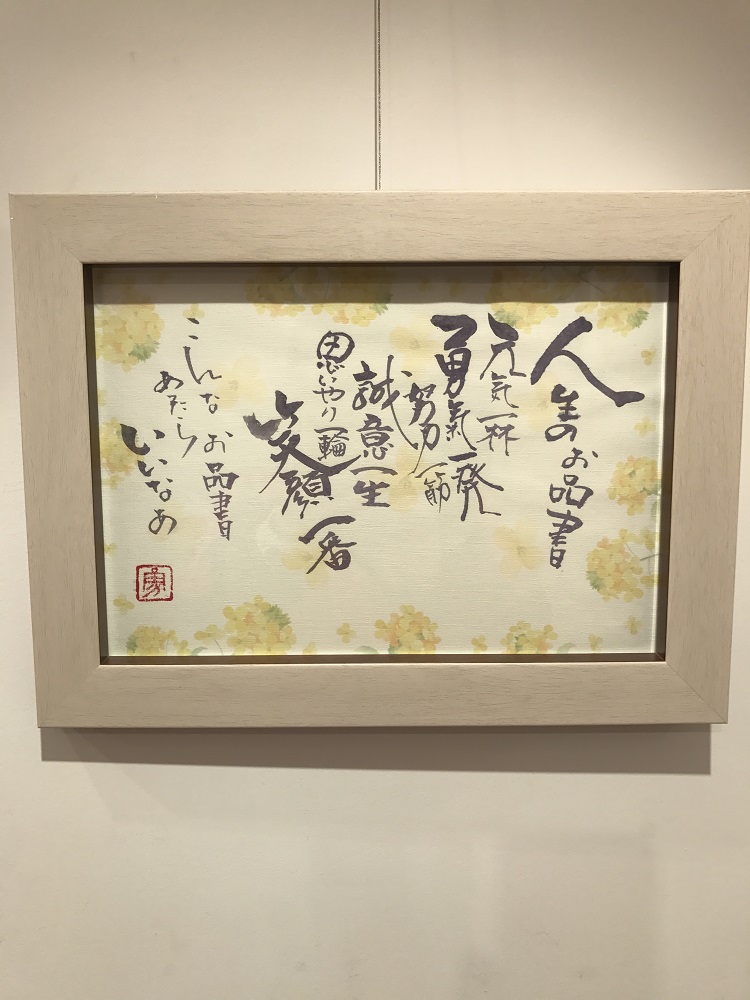 人生のお品書
元気一杯
勇氣一発
努力一筋
誠意一生
思いやり一輪
笑顔一番
こんなお品書
あたら
いいなあ